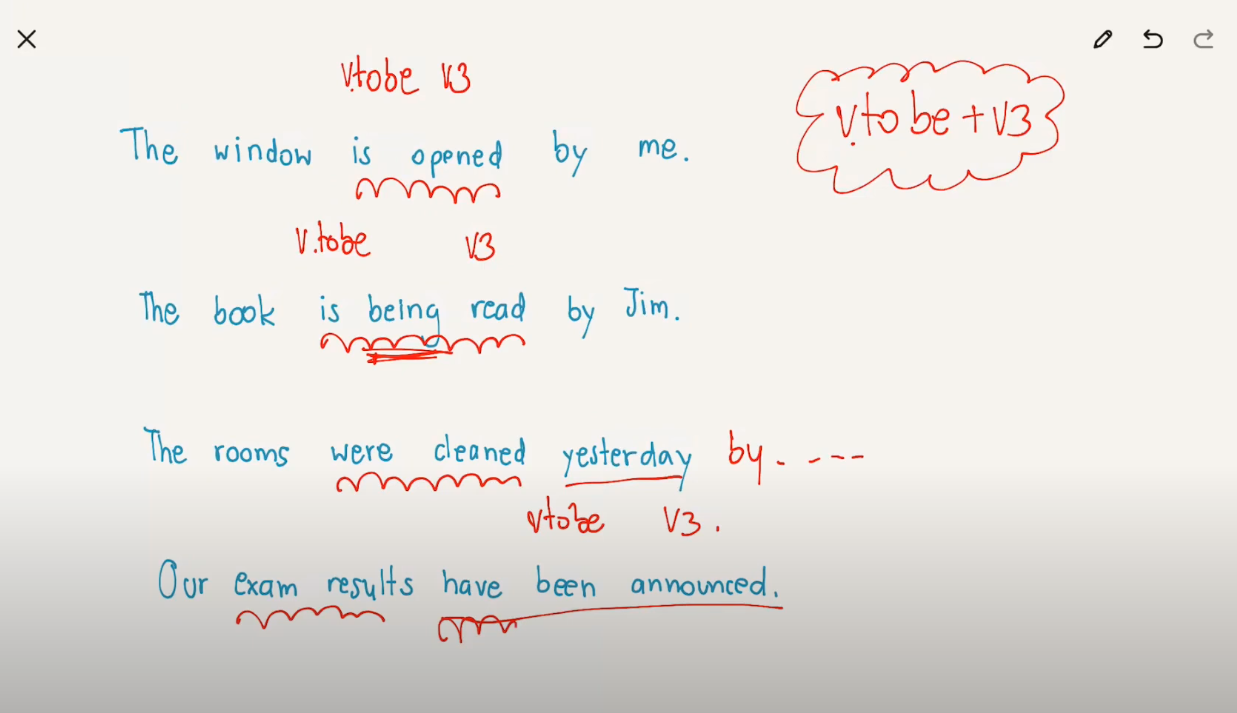 v.tobe v3
v.tobe + v3
The window is opened by me.
v.tobe v3
The book is being read by Jim.
The rooms were cleaned yesterday by. ----
vtobe v3.
Our exam results have been announced.